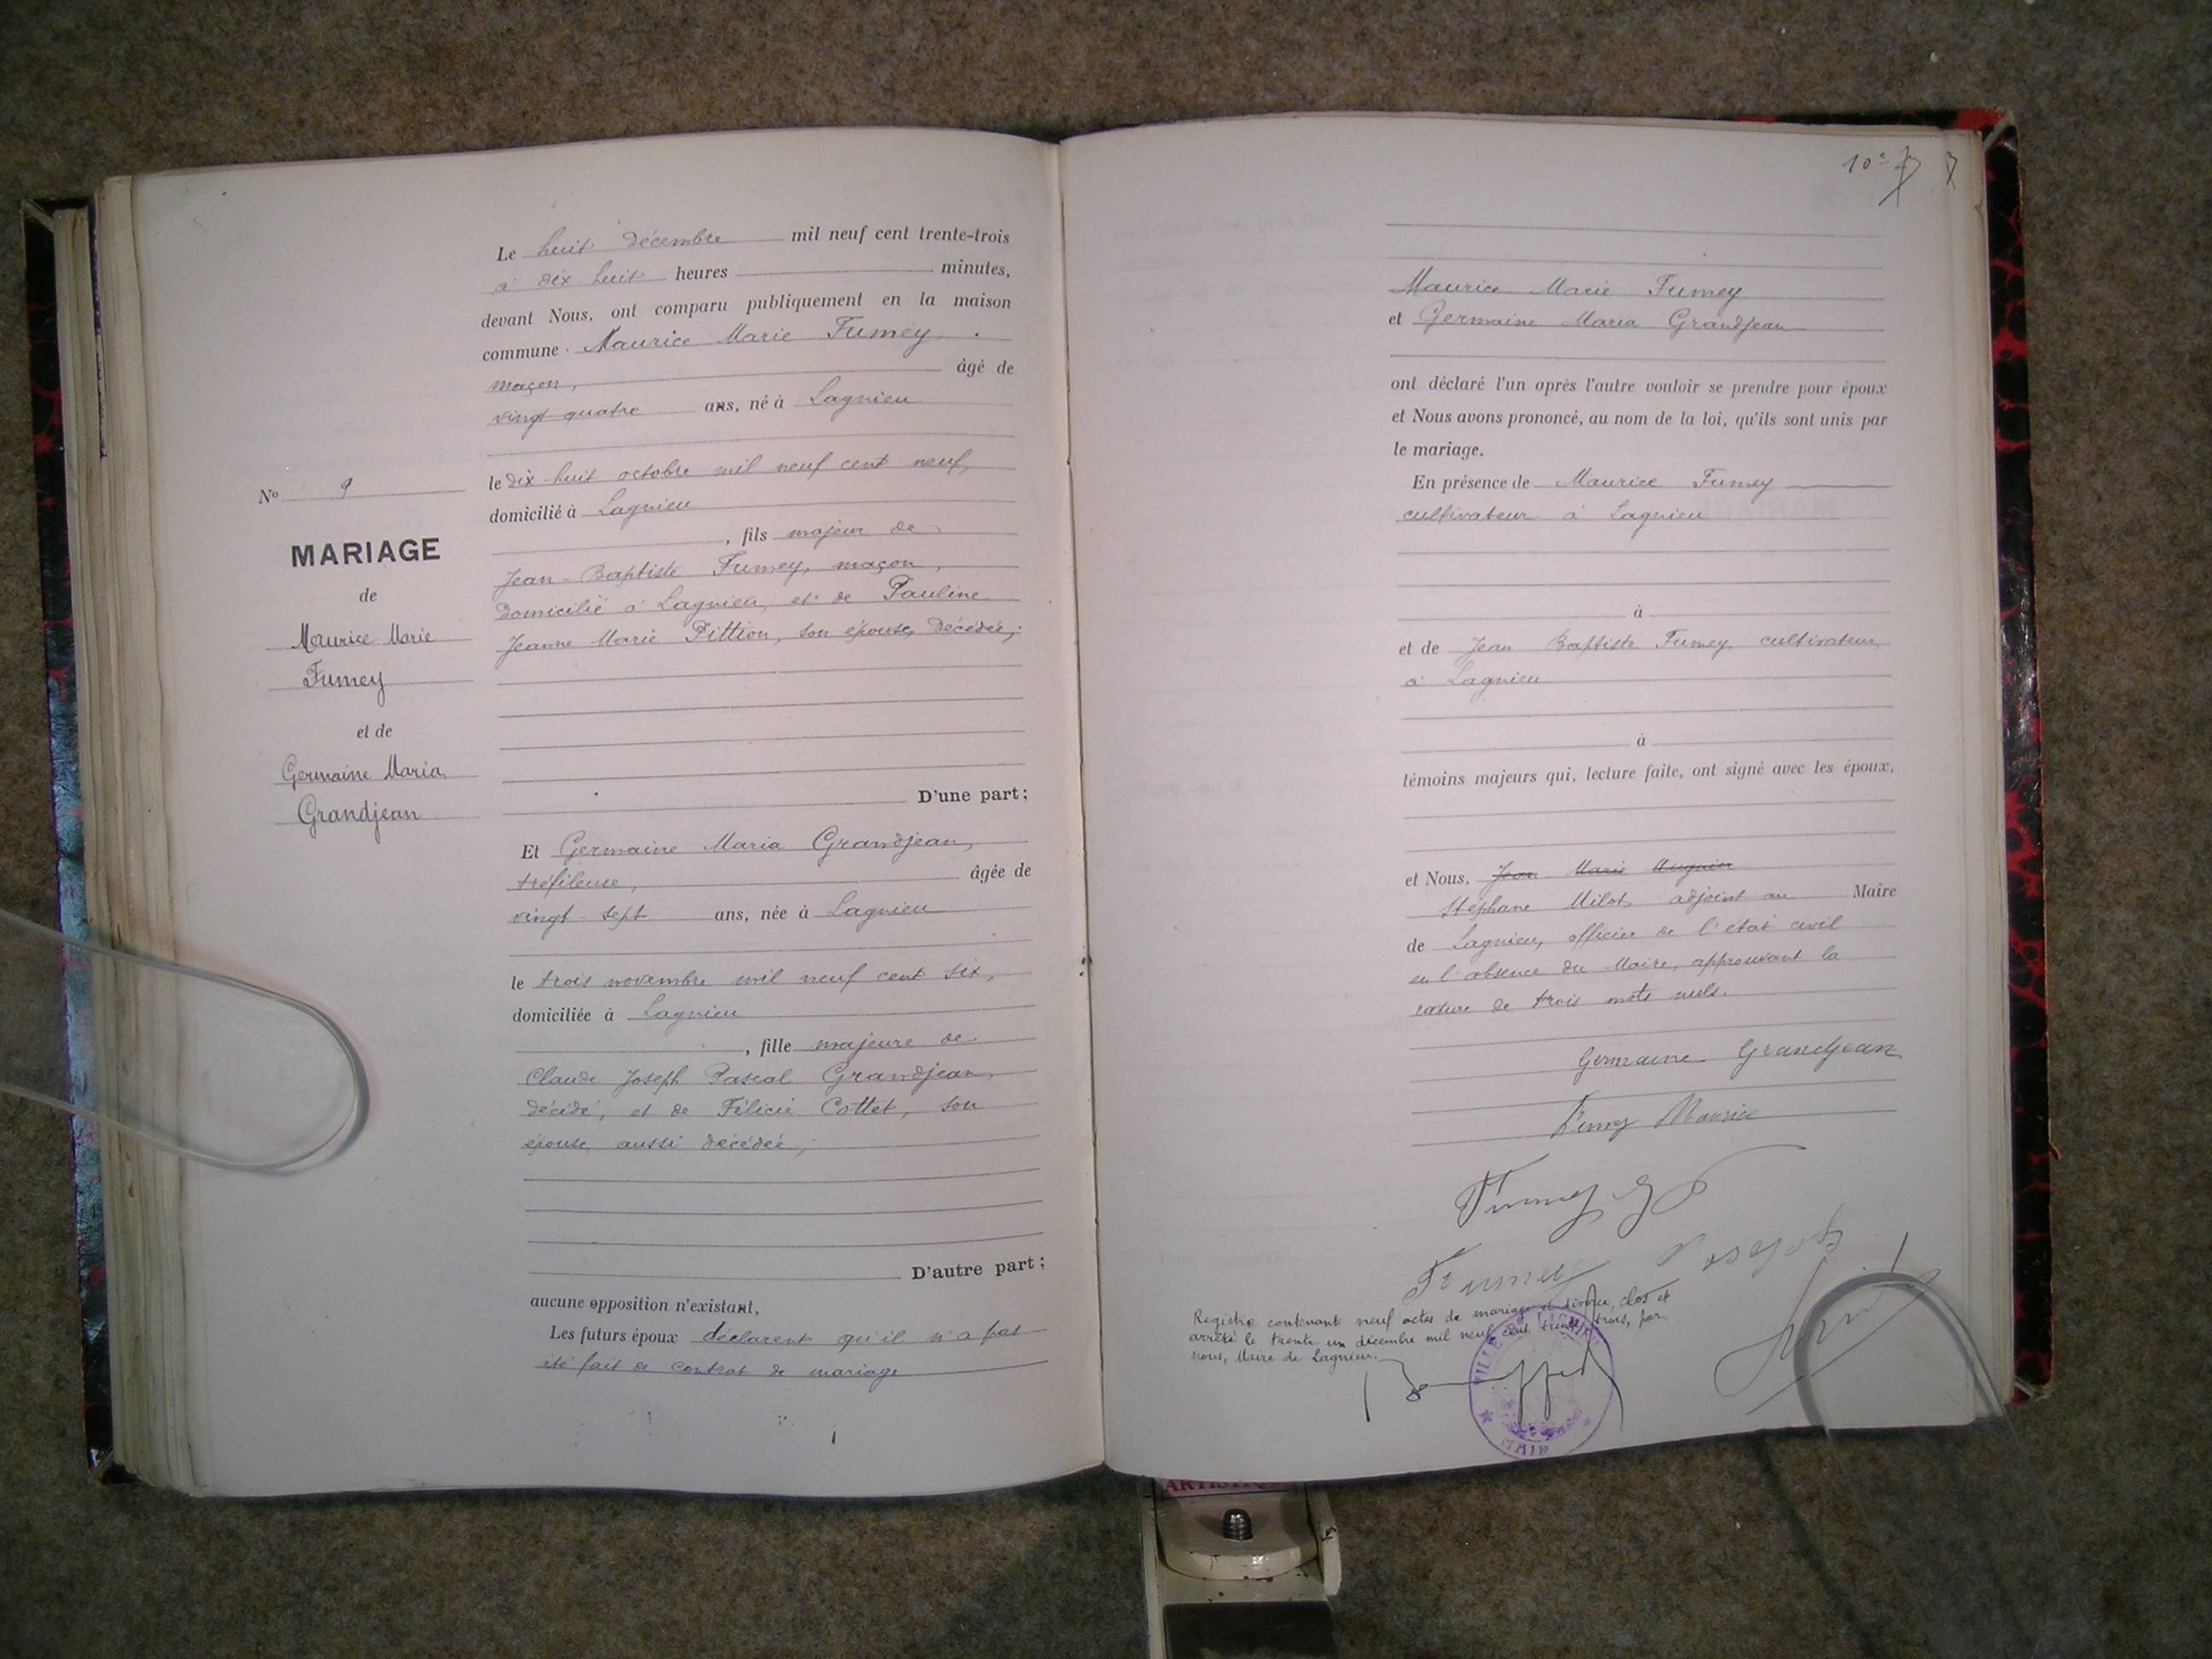 Le huit décembre mil neuf cent trente-trois
à dix-huit heures minutes,
devant Nous, ont comparu publiquement en la maison
commune : Maurice Marie Fumey,
maçon, âgé de
vingt-quatre ans, né à Lagnieu
le dix-huit octobre mil neuf cent neuf,
domicilié à Lagnieu
, fils majeur de
Jean-Baptiste Fumey, maçon,
domicilié à Lagnieu, et de Pauline
Jeanne Marie Pittion, son épouse, décédée;
D'une part;
Et Germaine Maria Grandjean,
tréfileuse, âgée de
vingt-sept ans, née à Lagnieu
le trois novembre mil neuf cent six,
domiciliée à Lagnieu
, fille majeure de
Claude Joseph Pascal Grandjean,
décédé, et de Félicie Cottet, son
épouse aussi décédée;
D'autre part;
aucune opposition n'existant,
Les futurs époux déclarent qu'il n'a pas
été fait de contrat de mariage
No 9
MARIAGE
de
Maurice Marie
Fumey
et de
Germaine Maria
Grandjean
10e
7
Maurice Marie Fumey
et Germaine Maria Grandjean
ont déclaré l'un après l'autre vouloir se prendre pour époux
et Nous avons prononcé, au nom de la loi, qu'ils sont unis par
le mariage.
En présence de Maurice Fumey
cultivateur à Lagnieu
à
et de Jean Baptiste Fumey, cultivateur
à Lagnieu
à
témoins majeurs qui, lecture faite, ont signé avec les époux,
et Nous, Jean Marie
Stéphane Milot, adjoint au Maire
de Lagnieu, officier de l'état civil
en l'absence du Maire, approuvant la
rature de trois mots nuls.
Germaine Grandjean
Fumey Maurice
Fumey
Fumey
Registre contenant neuf actes de mariage et divorce, clos et
arrêté le trente un décembre mil neuf cent trente trois, par
nous, Maire de Lagnieu.
VILLE DE LAGNIEU
MAIRIE
ARTISTIQ